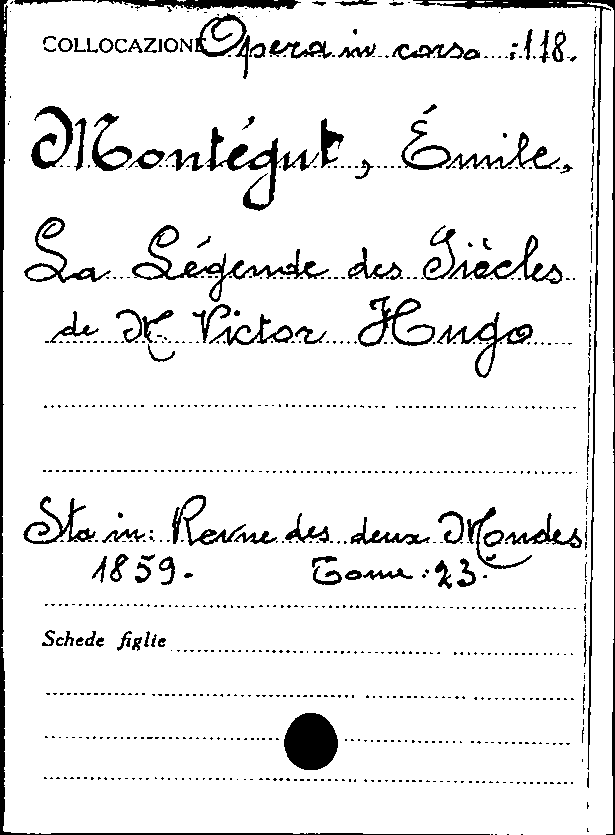 COLLOCAZIONE Opera in corso :118.
Montégut, Émile.
La Légende des Siècles
de M. Victor Hugo
Sta in: Revue des deux Mondes
1859. Tome :23.
Schede figlie